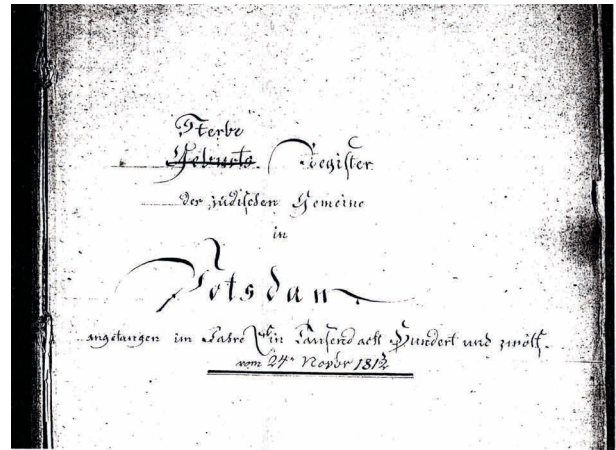 Sterbe
Geburts Register
der jüdischen Gemeine
in
Potsdam
angefangen im Jahre Ein Tausend acht Hundert und zwölf.
vom 24n Novbr 1812